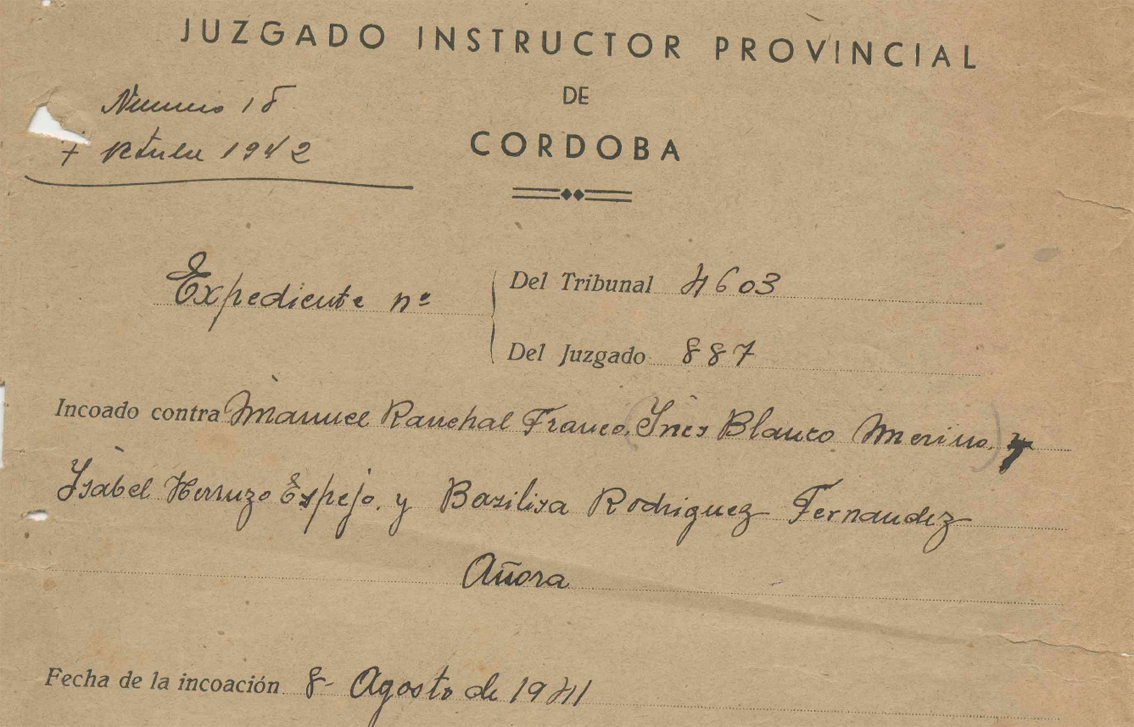 JUZGADO INSTRUCTOR PROVINCIAL
DE
CORDOBA
Numero 18
7 Octubre 1942
Expediente nº
Del Tribunal 4603
Del Juzgado 887
Incoado contra Manuel Ranchal Franco, (Inés Blanco Merino) y
Isabel Herruzo Espejo. y Basilisa Rodriguez Fernandez
Añora
Fecha de la incoación 8- Agosto de 1941